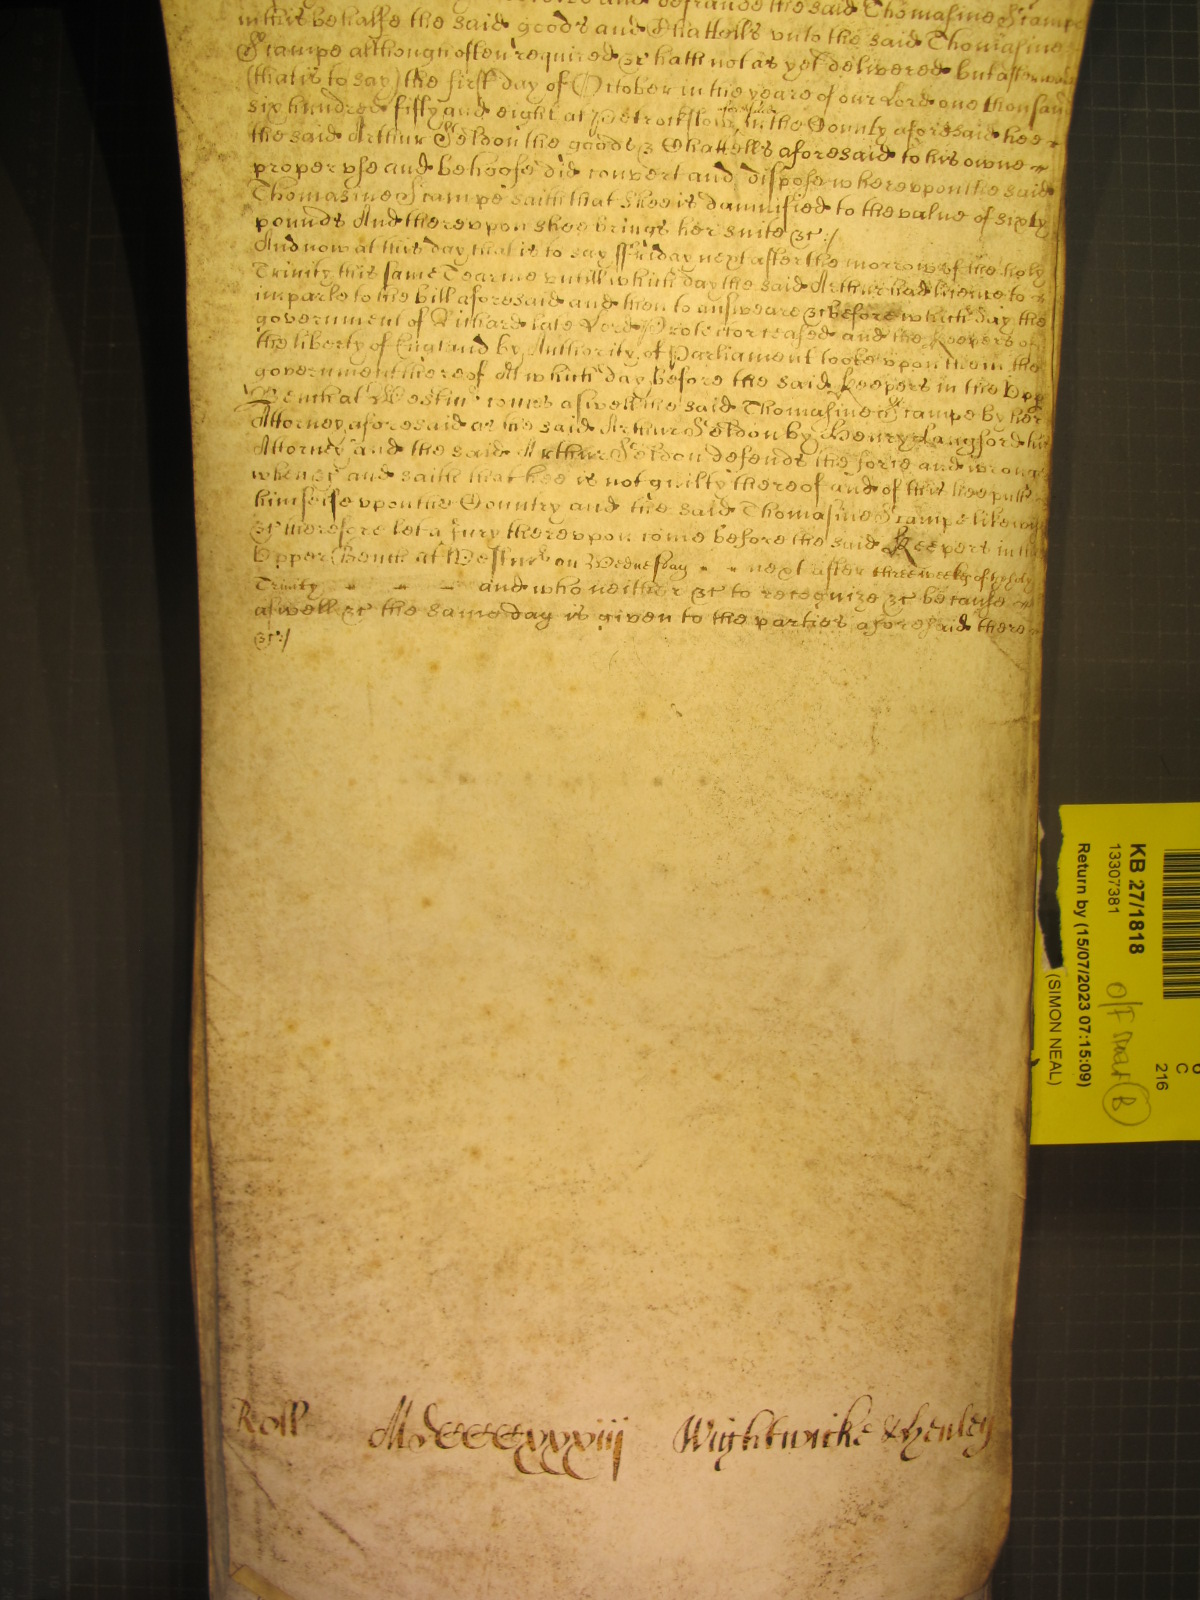 and defraude the said Thomasine Stampe
in this behalfe the said goods and Chattells unto the said Thomasine
Stampe although often required &c hath not as yet delivered but afterwards
(that is to say) the first day of October in the yeare of our Lord one thousand
six hundred fifty and eight at Petrockstow aforesaid in the County aforesaid hee
the said Arthur Seldon the goods & Chattells aforesaid to his owne
proper use and behoofe did convert and dispose whereupon the said
Thomasine Stampe saith that shee is damnified to the value of sixty
pounds And thereupon shee brings her suite &c:/
And now at this day that is to say ffriday next after the morrow of the holy
Trinity this same Tearme untill which day the said Arthur had licence to
imparle to the bill aforesaid and then to answeare &c before which day the
government of Richard late Lord Protector ceased and the Keepers of
the liberty of England by Authority of Parliament tooke upon them the
government thereof At which day before the said Keepers in the Upp
Bench at Westm comes aswell the said Thomasine Stampe by her
Attorney aforesaid as the said Arthur Seldon by Henry Langford his
Attorney and the said Arthur Seldon defends the force and wrong
when &c and saith that hee is not guilty thereof and of this hee putts
himselfe upon the Country and the said Thomasine Stampe likewise
&c therefore let a Jury thereupon come before the said Keepers in the
Upper Bench at Westmr on Wednesday next after three weeks of holy
Trinity and who neither &c to recognize &c because
aswell &c the same day is given to the parties aforesaid there
&c:/
Roll Mdccccxxxiij Wightwicke & henley
KB 27/1818
13307381
Return by (15/07/2023 07:15:09)
(SIMON NEAL)
216
C
off mat B